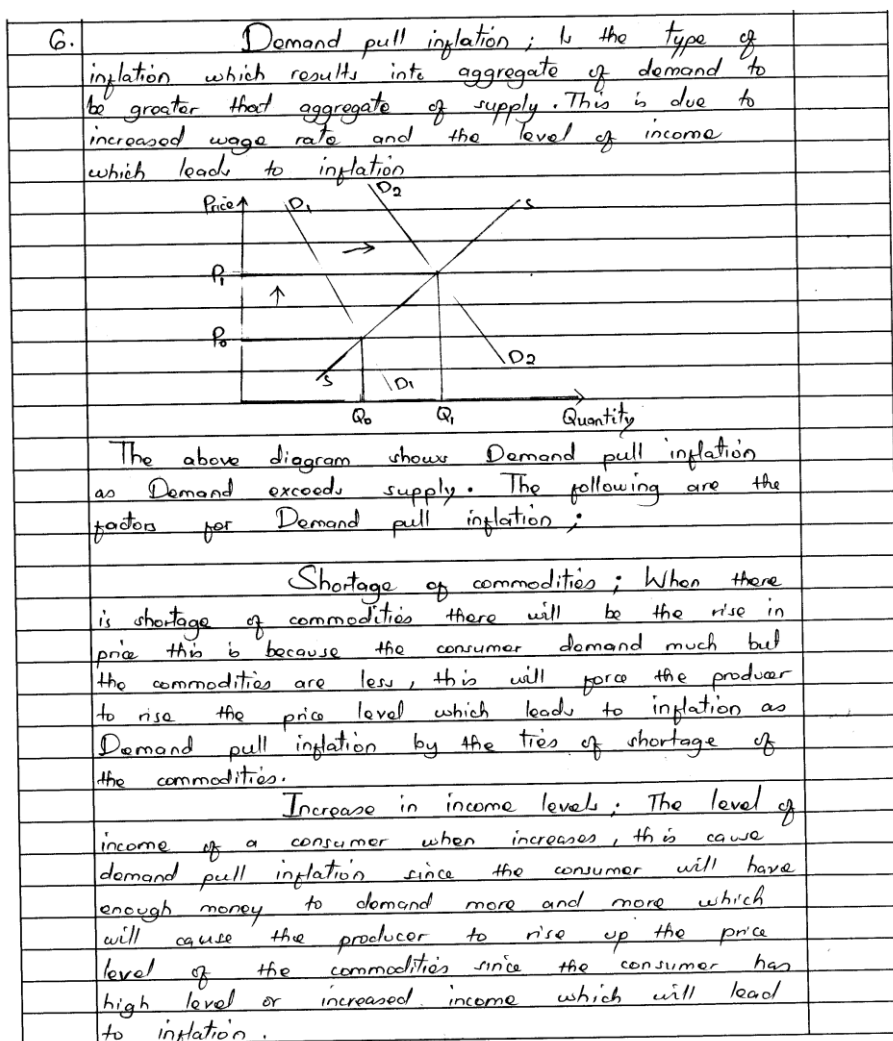 6. Demand pull inflation; Is the type of
inflation which results into aggregate of demand to
be greater that aggregate of supply. This is due to
increased wage rate and the level of income
which leads to inflation
Price D1 D2 S
P1
P0
S D1 D2
Q0 Q1 Quantity
The above diagram shows Demand pull inflation
as Demand exceeds supply. The following are the
factors for Demand pull inflation;
Shortage of commodities; When there
is shortage of commodities there will be the rise in
price this is because the consumer demand much but
the commodities are less, this will force the producer
to rise the price level which leads to inflation as
Demand pull inflation by the ties of shortage of
the commodities.
Increase in income levels; The level of
income of a consumer when increases, this cause
demand pull inflation since the consumer will have
enough money to demand more and more which
will cause the producer to rise up the price
level of the commodities since the consumer has
high level or increased income which will lead
to inflation.